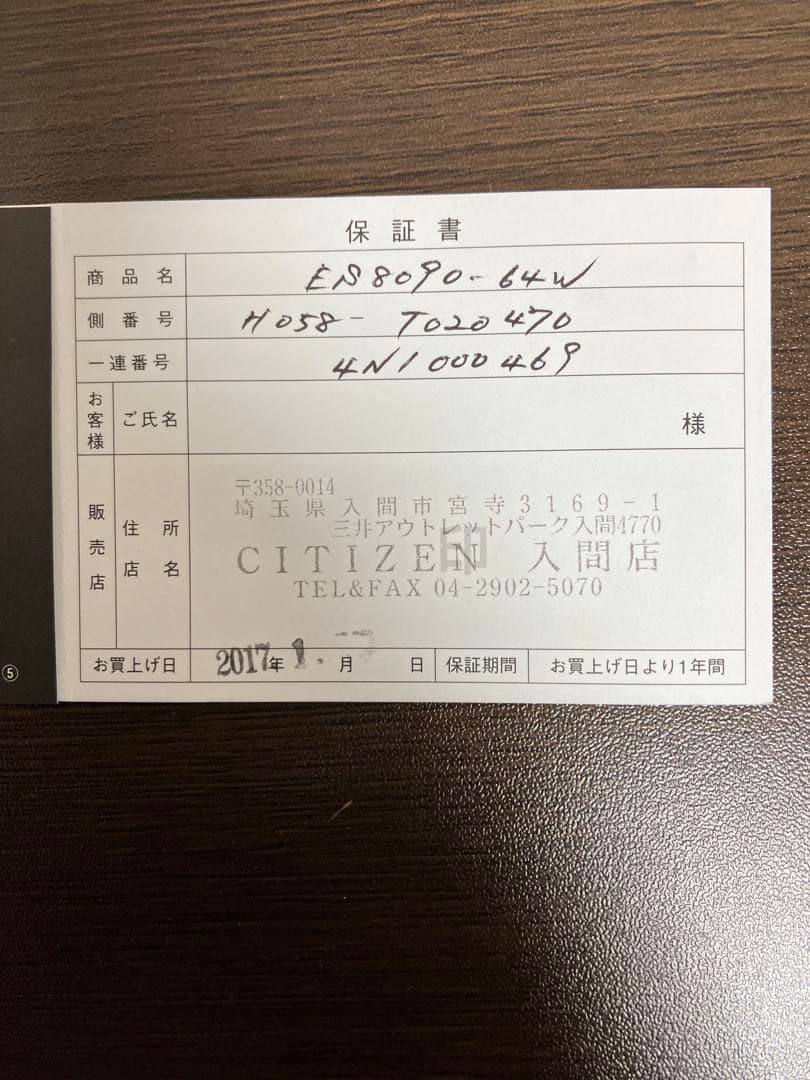 保証書
商品名 ES8090-64W
側番号 H058-T020470
一連番号 4N1000469
お客様 ご氏名 様
販売店 住所 店名
〒358-0014
埼玉県入間市宮寺3169-1
三井アウトレットパーク入間4770
CITIZEN 入間店
印
TEL&FAX 04-2902-5070
お買上げ日 2017年 1. 月 日 保証期間 お買上げ日より1年間
⑤